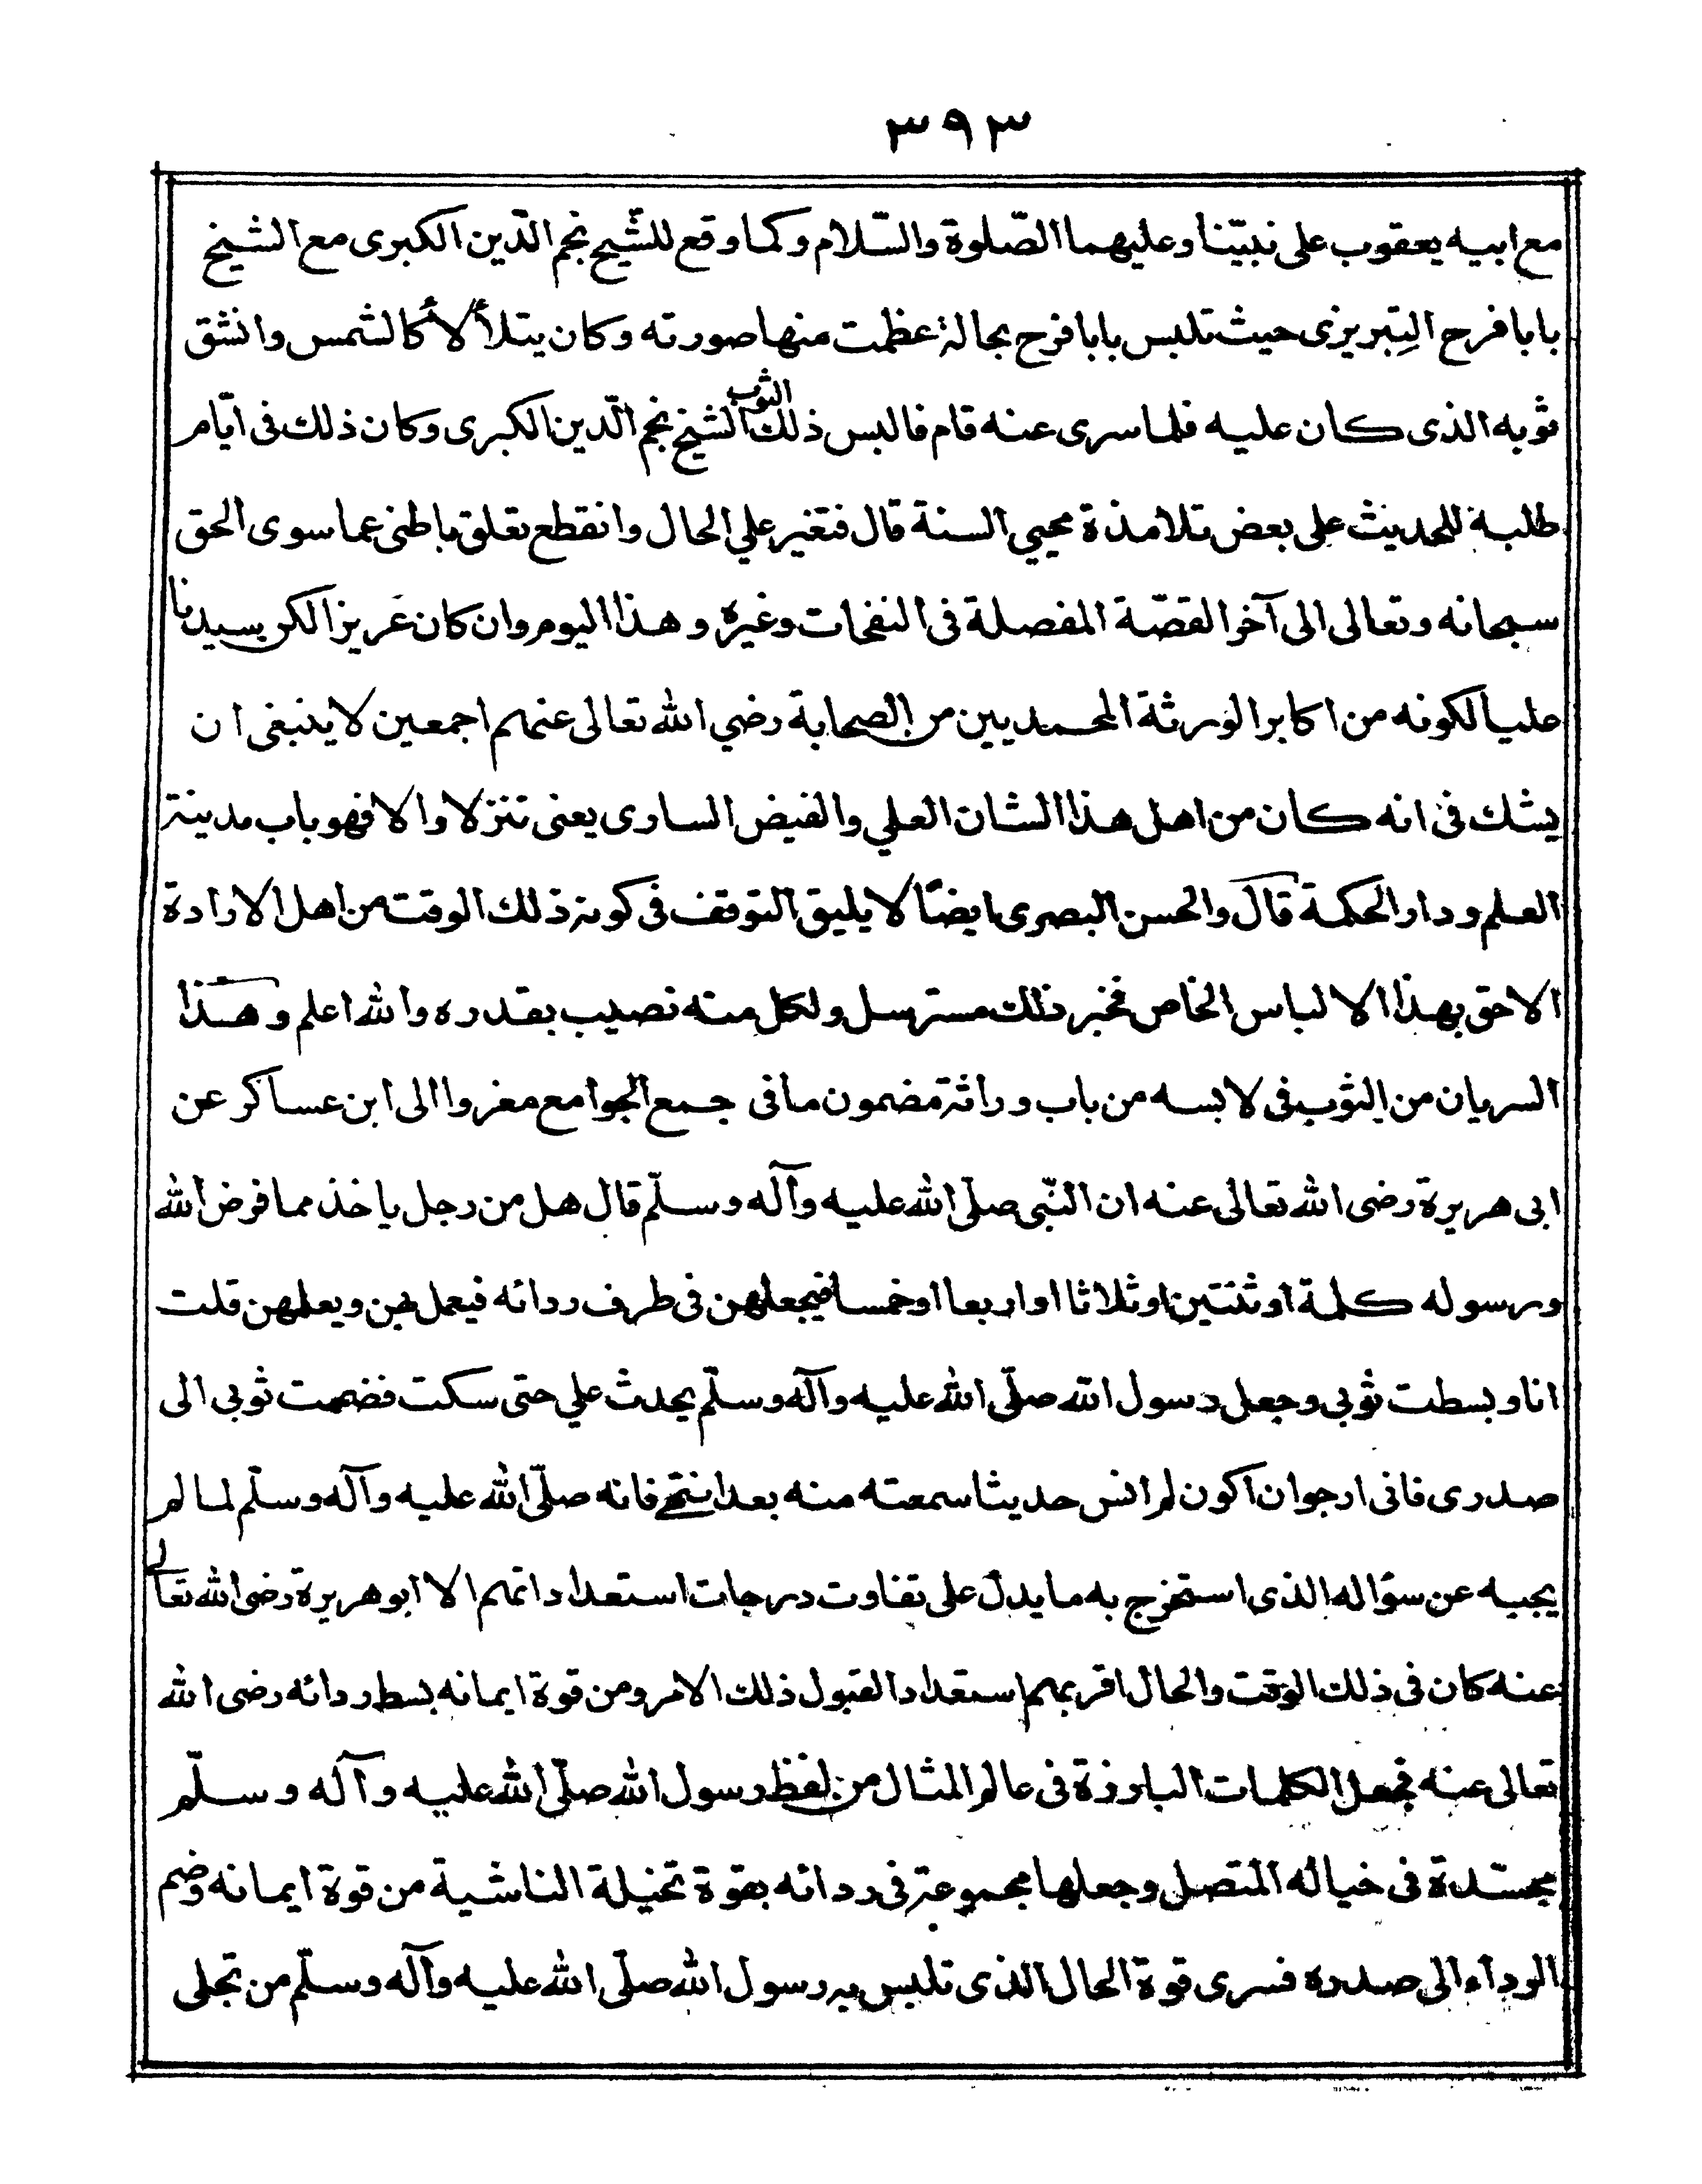 ٣٩٣
مع ابيه يعقوب على نبيّنا وعليهما الصّلوة والسّلام وكما وقع للشّيخ نجم الدّين الكبرى مع الشيخ
بابا فرح التِبريزى حيث تلبس بابا فرح بحالة عظمت منها صورته وكان يتلأ لأ كالشمس وانشق
ثوبه الذى كان عليه فلما سرى عنه قام فالبس ذلك الثوب الشيخ نجم الدّين الكبرى وكان ذلك فى ايّام
طلبة للحديث على بعض تلامذة محيي السنة قال فتغير علي الحال وانقطع تعلق باطنى عما سوى الحق
سبحانه وتعالى الى آخر القصّة المفصلة فى النفحات وغيره وهذا اليوم وان كان عزيزا لكن سيدنا
عليا لكونه من اكابر الورثة المحمديين من الصحابة رضي الله تعالى عنهم اجمعين لا ينبغى ان
يشك فى انه كان من اهل هذا الشان العلي والفيض السارى يعنى تنزلا والا فهو باب مدينة
العلم ودار الحكمة قال والحسن البصرى ايضًا لا يليق التوقف فى كونه ذلك الوقت من اهل الارادة
الاحق بهذا الالباس الخاص فخبر ذلك مسترسل ولكل منه نصيب بقدره والله اعلم وهذا
السريان من الثوب فى لابسه من باب وراثة مضمون ما فى جمع الجوامع معزوا الى ابن عساكر عن
ابى هريرة رضى الله تعالى عنه ان النّبى صلّى الله عليه وآله وسلّم قال هل من رجل ياخذ مما فرض الله
ورسوله كلمة او ثنتين او ثلاثا او اربعا او خمسا فيجعلهن فى طرف ردائه فيعمل بهن ويعلمهن قلت
انا وبسطت ثوبي وجعل رسول الله صلّى الله عليه وآله وسلّم يحدث علي حتى سكت فضممت ثوبي الى
صدرى فانى ارجو ان اكون لم انس حديثا سمعته منه بعد انتهى فانه صلّى الله عليه وآله وسلّم لما لم
يجبه عن سؤاله الذى استخرج به ما يدل على تفاوت درجات استعداداتهم الا ابو هريرة رضى الله تعالى
عنه كان فى ذلك الوقت والحال اقربهم استعدادا لقبول ذلك الامر ومن قوة ايمانه بسط ردائه رضى الله
تعالى عنه فجعل الكلمات البارزة فى عالم المثال من لفظ رسول الله صلّى الله عليه وآله وسلّم
مجسّدة فى خياله المتصل وجعلها مجموعة فى ردائه بقوة تخيلة الناشية من قوة ايمانه وضم
الرداء الى صدره فسرى قوة الحال الذى تلبس به رسول الله صلّى الله عليه وآله وسلّم من تجلى